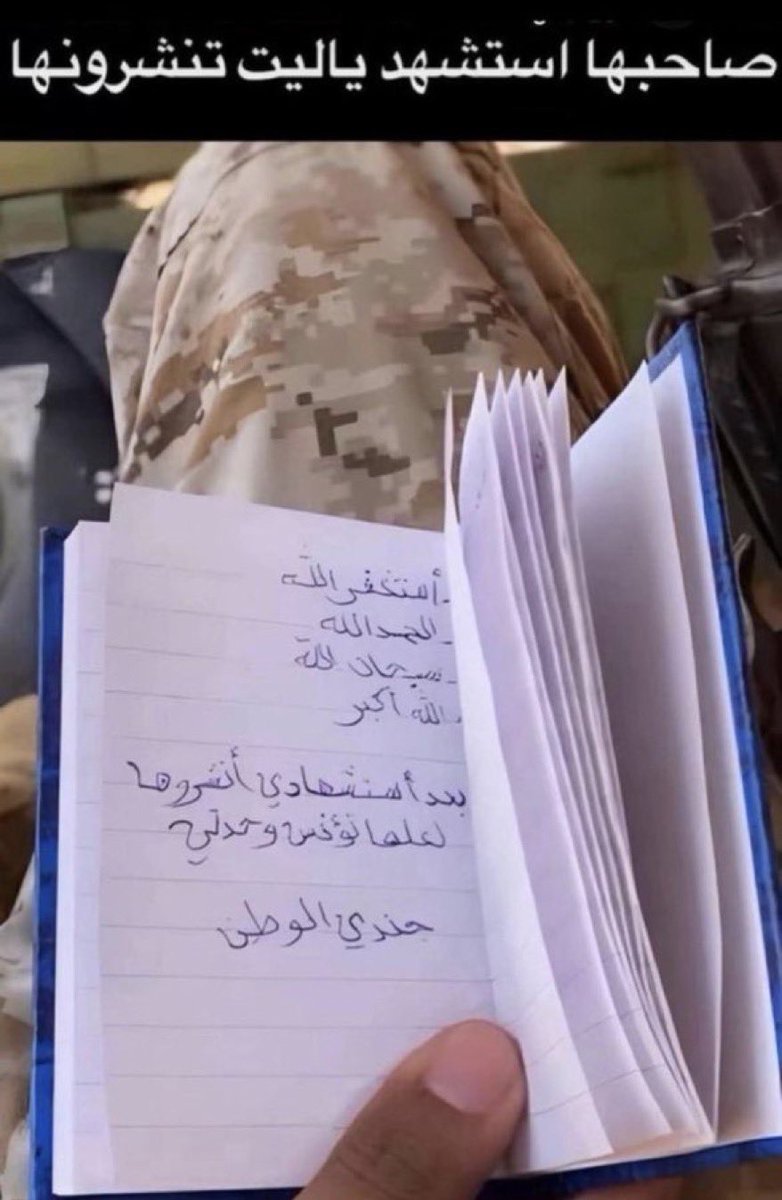 صاحبها استشهد ياليت تنشرونها
- أستغفر الله
- الحمدالله
- سبحان لله
- الله أكبر
بعد أستشهادي أنشروها
لعلها تؤنس وحدتي
جندي الوطن